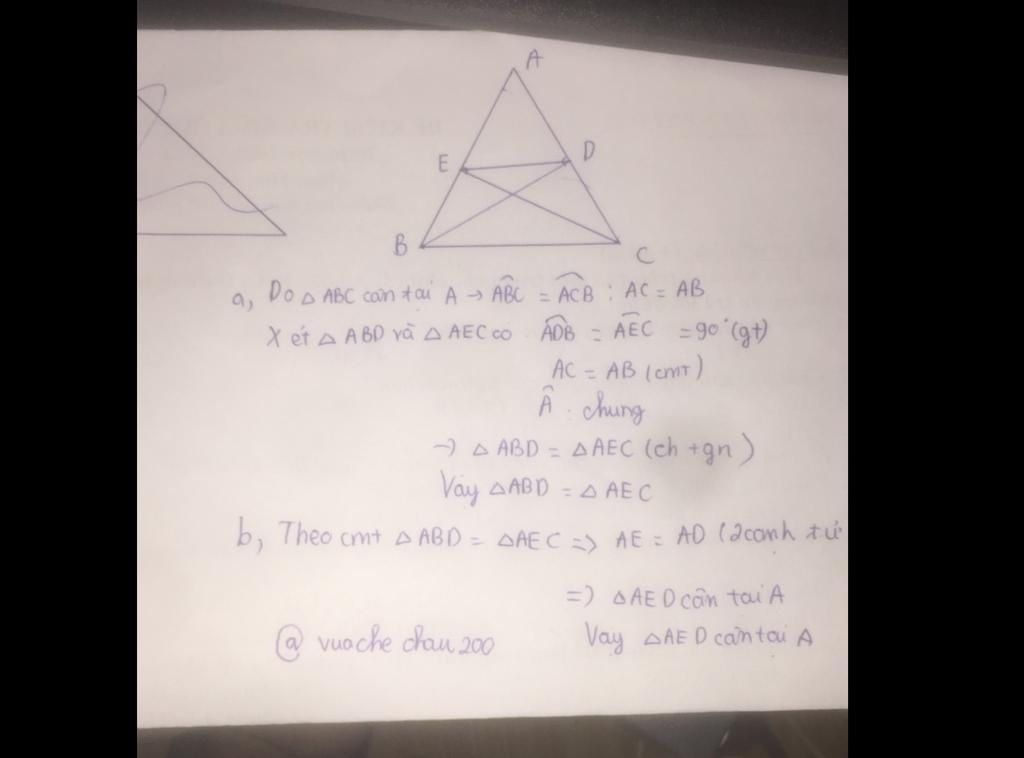 A
E
D
B
C
a, Do △ ABC cân tai A → ABC = ACB : AC = AB
Xét △ ABD và △ AEC có ADB = AEC = 90° (gt)
AC = AB (cmt)
A : chung
→ △ ABD = △ AEC (ch + gn)
Vậy △ABD = △ AEC
b, Theo cmt △ ABD = △AEC => AE = AD (2 canh tư
=> △AED cân tai A
Vay △AED cân tai A
@ vuache chau 200